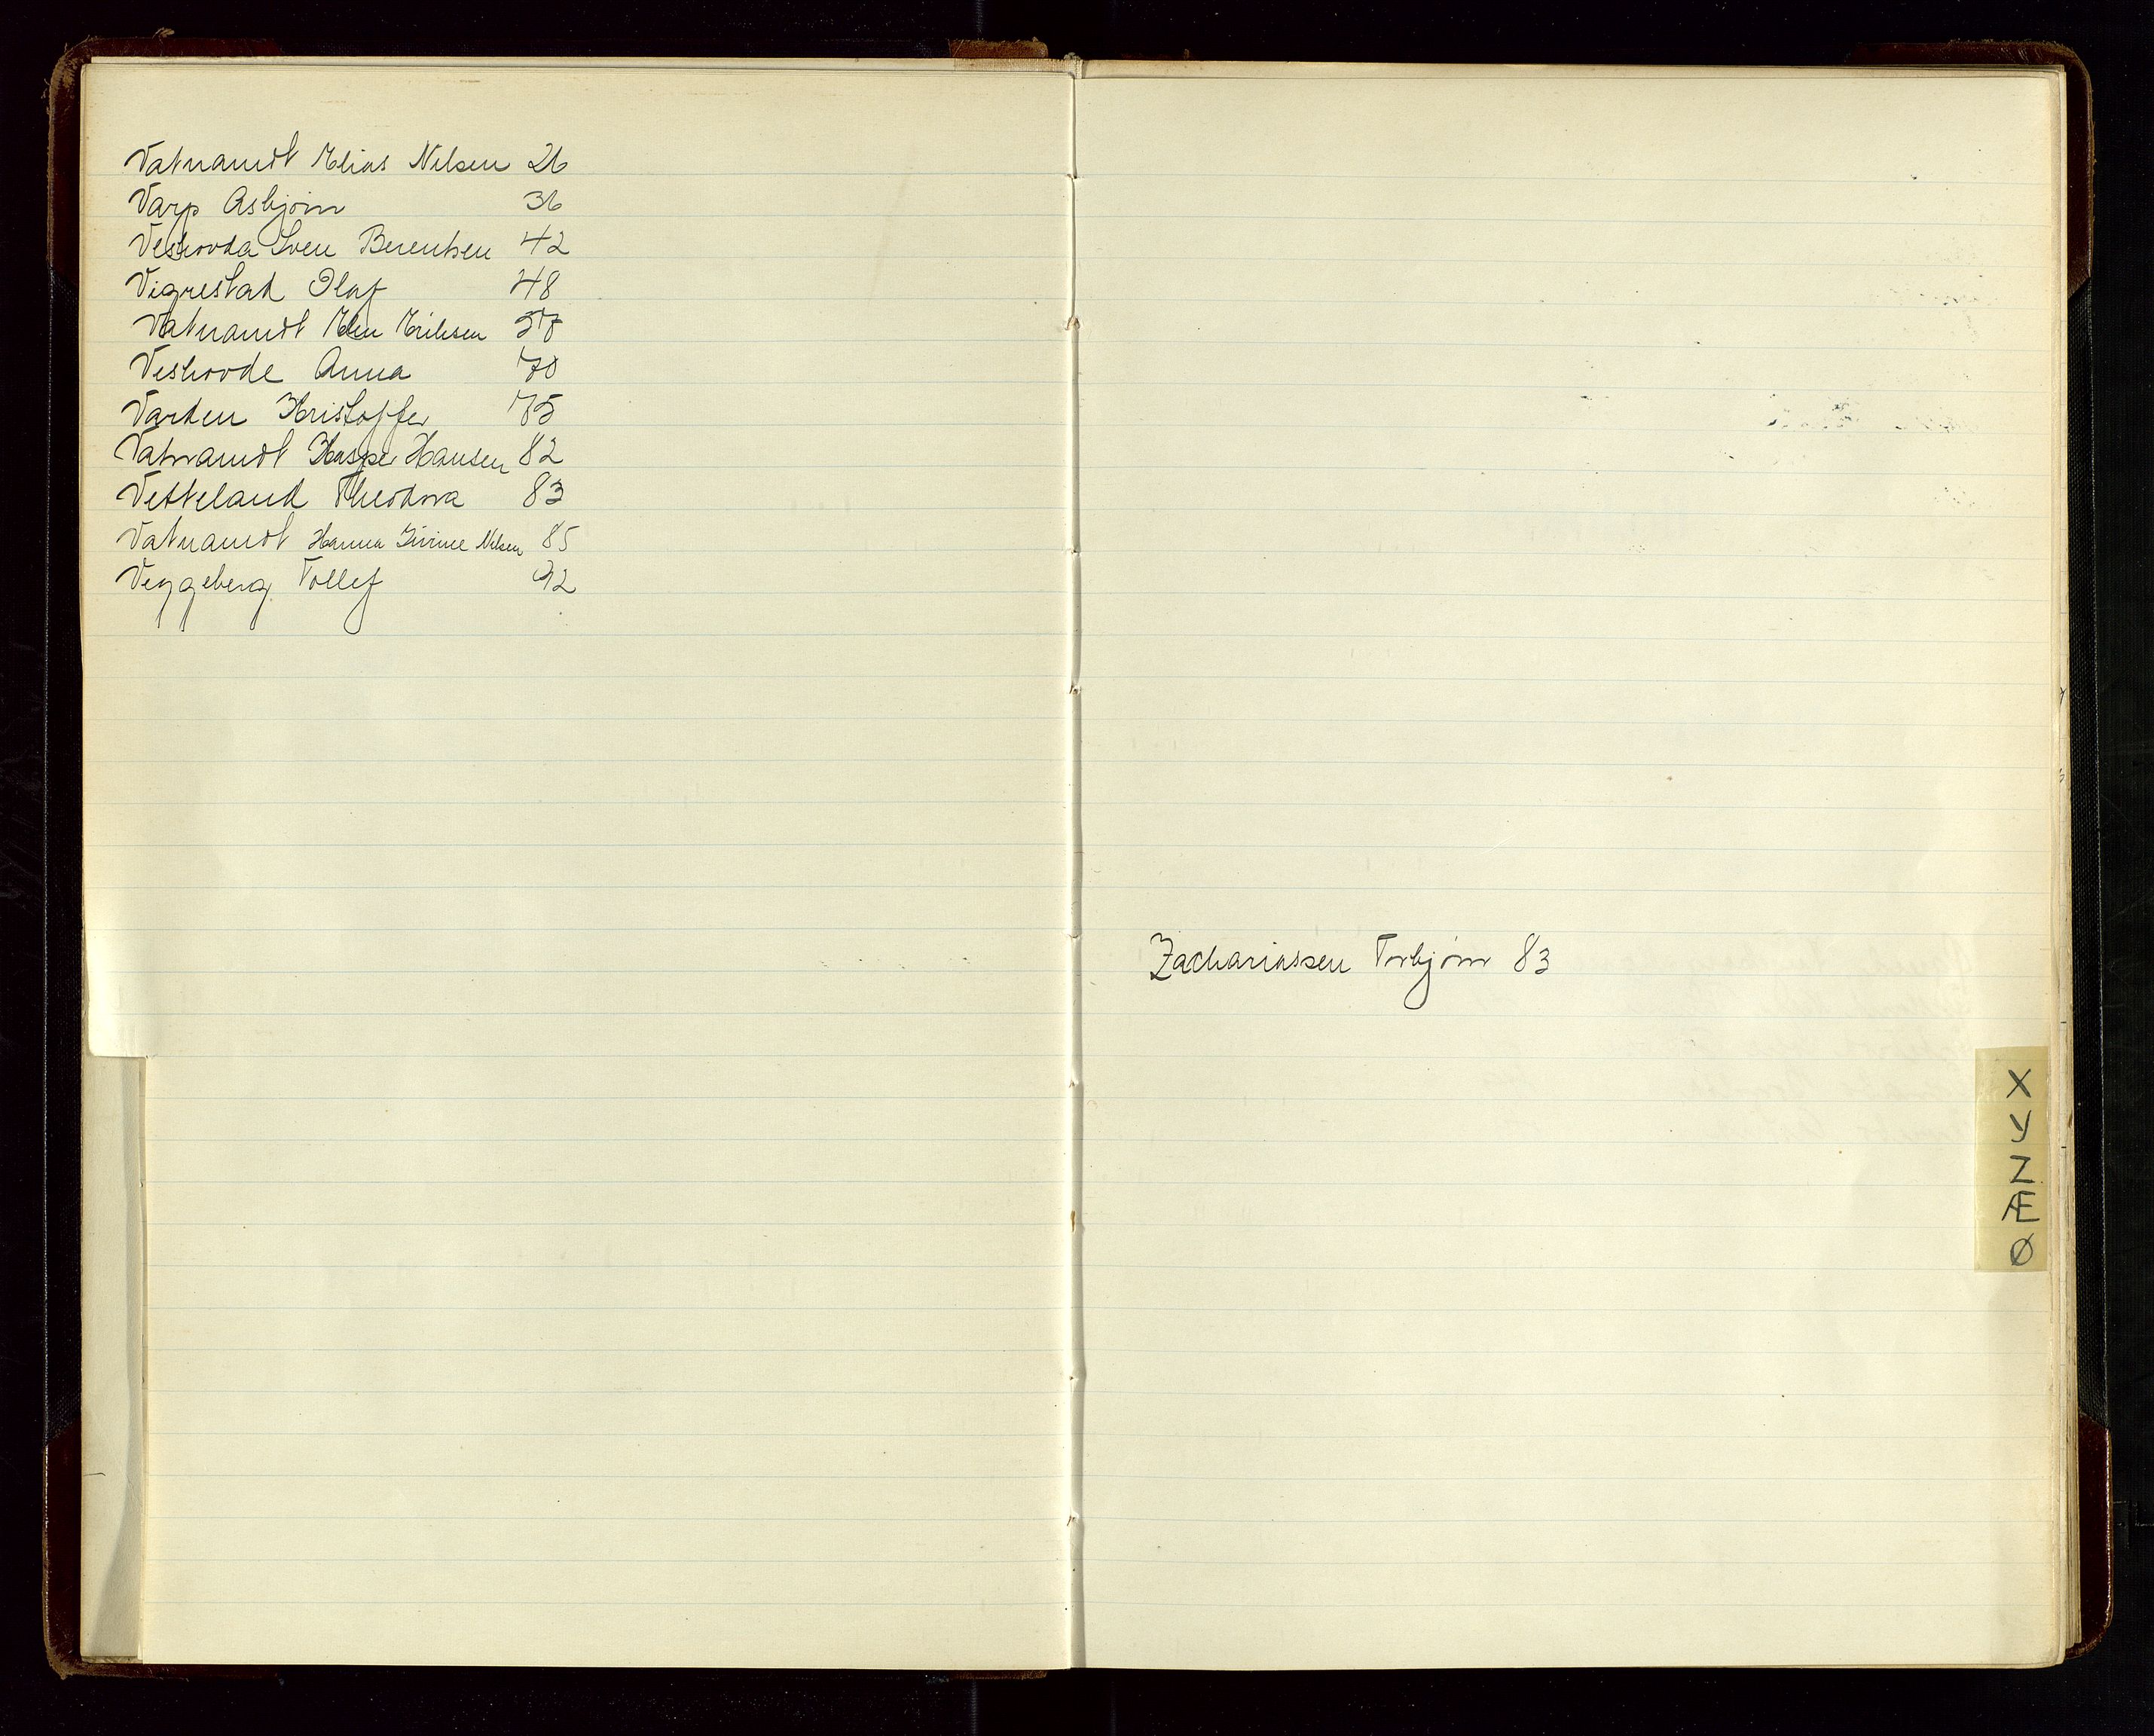 Vatnamot Elias Nilsen 26
Varp Asbjørn 36
Veshovda Sven Berentsen 42
Vigrestad Olaf 48
Vatnamot Elen Eriksen 57
Veshovde Anna 70
Varden Kristoffer 75
Vatnamot Kasper Hansen 82
Vetteland Theodora 83
Vatnamot Hanna Nilsen 85
Veggeberg Tollef 92
Zachariassen Torbjørn 83
X
Y
Z
Æ
Ø